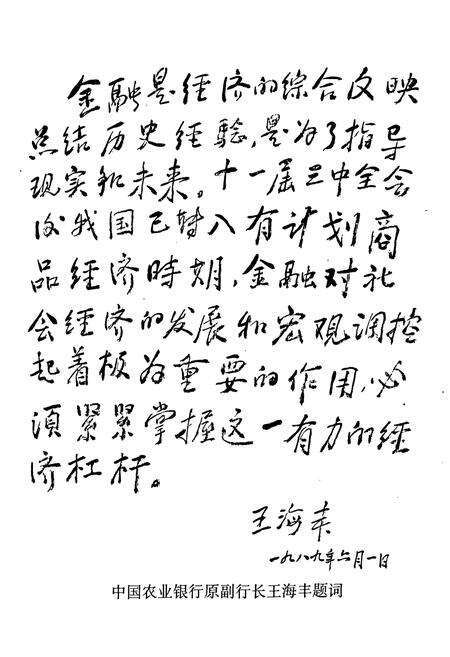 金融是经济的综合反映
总结历史经验，是为了指导
现实和未来。十一届三中全会
后我国已转入有计划商
品经济時期，金融对社
会经济的发展和宏观调控
起着极为重要的作用，必
须紧紧掌握这一有力的经
济杠杆。
王海丰
一九八九年六月一日
中国农业银行原副行长王海丰题词